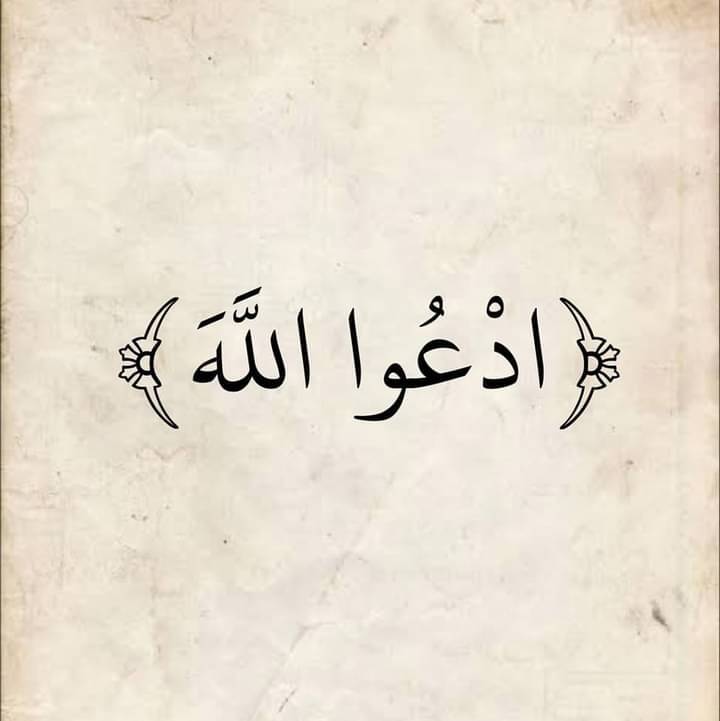 ﴿ ادْعُوا اللَّهَ ﴾